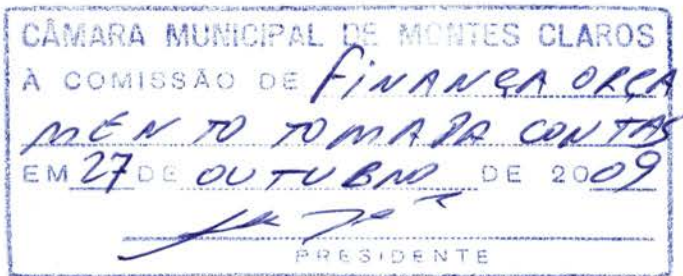 CÂMARA MUNICIPAL DE MONTES CLAROS
À COMISSÃO DE FINANÇA ORÇA
MENTO TOMADA CONTAS
EM 27 DE OUTUBRO DE 2009
PRESIDENTE